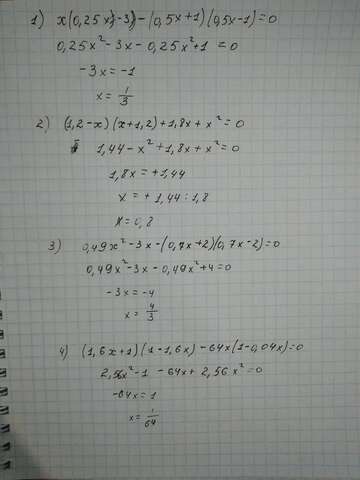 1) x(0,25x-3)-(0,5x+1)(0,5x-1)=0
0,25x²-3x-0,25x²+1=0
-3x=-1
x=1/3
2) (1,2-x)(x+1,2)+1,8x+x²=0
1,44-x²+1,8x+x²=0
1,8x=+1,44
x=+1,44:1,8
x=0,8
3) 0,49x²-3x-(0,7x+2)(0,7x-2)=0
0,49x²-3x-0,49x²+4=0
-3x=-4
x=4/3
4) (1,6x+1)(1-1,6x)-64x(1-0,04x)=0
2,56x²-1-64x+2,56x²=0
-64x=1
x=1/64